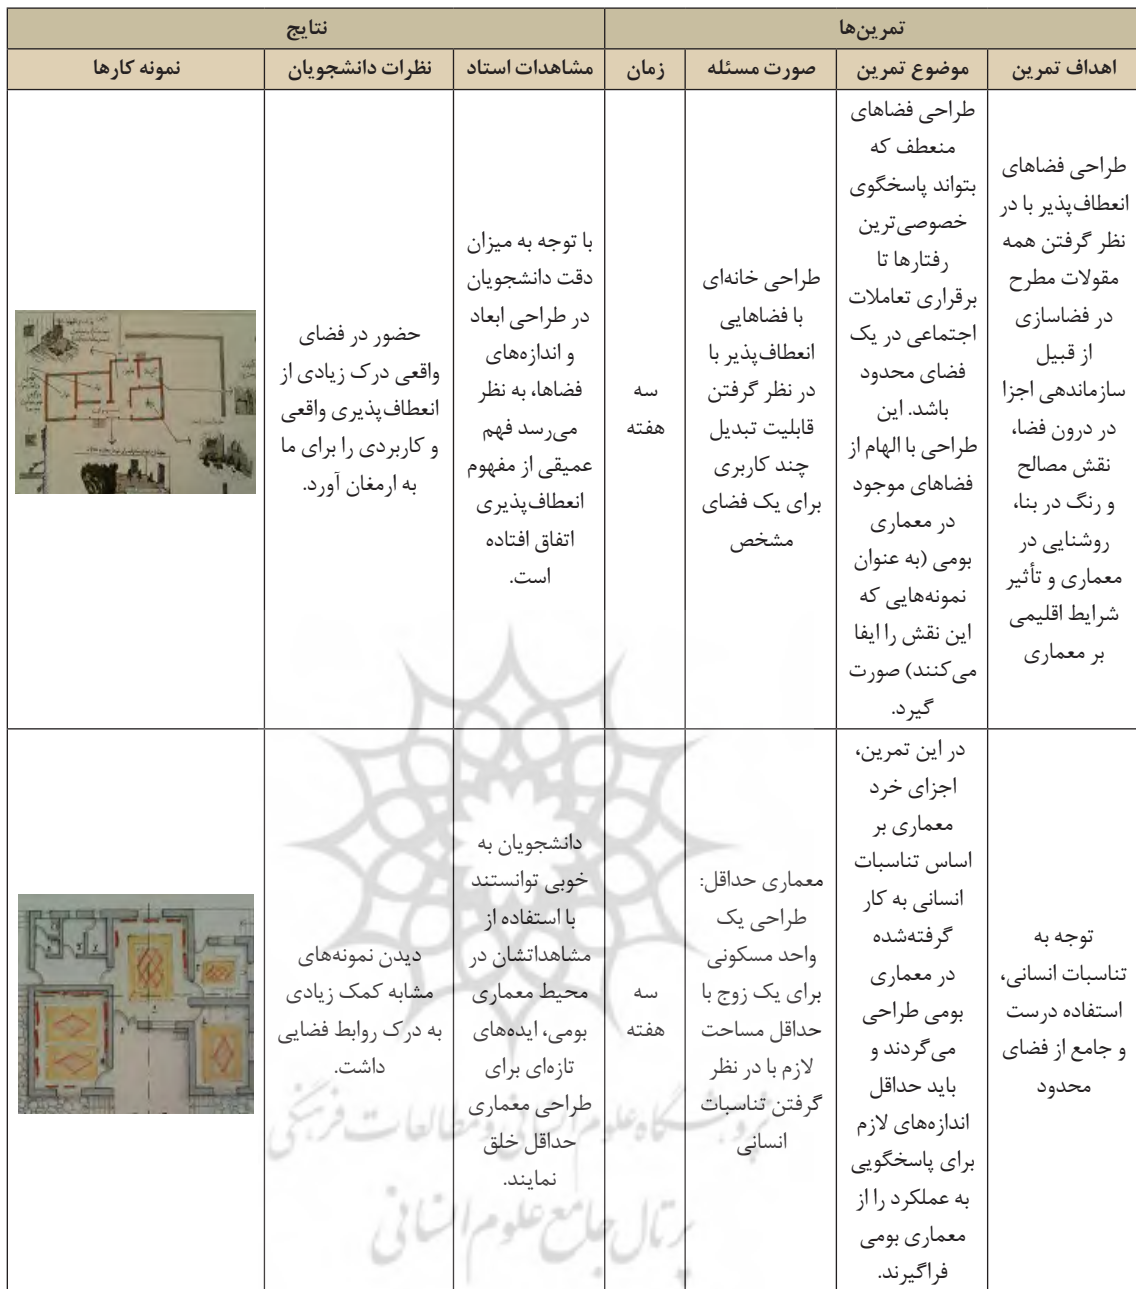 تمرین‌ها
نتایج
اهداف تمرین
موضوع تمرین
صورت مسئله
زمان
مشاهدات استاد
نظرات دانشجویان
نمونه کارها
طراحی فضاهای
انعطاف‌پذیر با در
نظر گرفتن همه
مقولات مطرح
در فضاسازی
از قبیل
سازماندهی اجزا
در درون فضا،
نقش مصالح
و رنگ در بنا،
روشنایی در
معماری و تأثیر
شرایط اقلیمی
بر معماری
طراحی فضاهای
منعطف که
بتواند پاسخگوی
خصوصی‌ترین
رفتارها تا
برقراری تعاملات
اجتماعی در یک
فضای محدود
باشد. این
طراحی با الهام از
فضاهای موجود
در معماری
بومی (به عنوان
نمونه‌هایی که
این نقش را ایفا
می‌کنند) صورت
گیرد.
طراحی خانه‌ای
با فضاهایی
انعطاف‌پذیر با
در نظر گرفتن
قابلیت تبدیل
چند کاربری
برای یک فضای
مشخص
سه
هفته
با توجه به میزان
دقت دانشجویان
در طراحی ابعاد
و اندازه‌های
فضاها، به نظر
می‌رسد فهم
عمیقی از مفهوم
انعطاف‌پذیری
اتفاق افتاده
است.
حضور در فضای
واقعی درک زیادی از
انعطاف‌پذیری واقعی
و کاربردی را برای ما
به ارمغان آورد.
توجه به
تناسبات انسانی،
استفاده درست
و جامع از فضای
محدود
در این تمرین،
اجزای خرد
معماری بر
اساس تناسبات
انسانی به کار
گرفته‌شده
در معماری
بومی طراحی
می‌گردند و
باید حداقل
اندازه‌های لازم
برای پاسخگویی
به عملکرد را از
معماری بومی
فراگیرند.
معماری حداقل:
طراحی یک
واحد مسکونی
برای یک زوج با
حداقل مساحت
لازم با در نظر
گرفتن تناسبات
انسانی
سه
هفته
دانشجویان به
خوبی توانستند
با استفاده از
مشاهداتشان در
محیط معماری
بومی، ایده‌های
تازه‌ای برای
طراحی معماری
حداقل خلق
نمایند.
دیدن نمونه‌های
مشابه کمک زیادی
به درک روابط فضایی
داشت.
پژوهشگاه علوم انسانی و مطالعات فرهنگی
پرتال جامع علوم انسانی